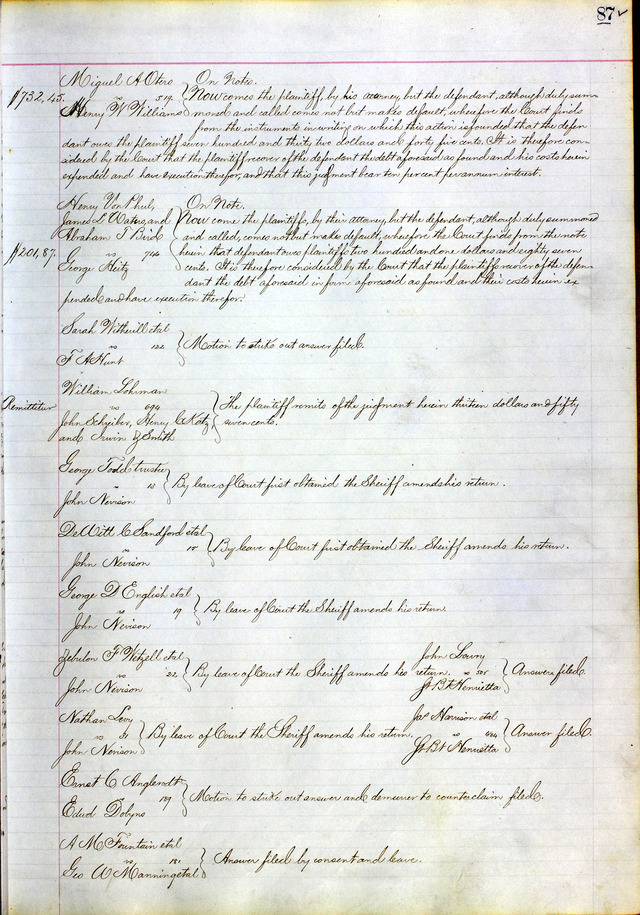 87
Miguel A Otero On Notes.
$732,45. vs 519. Now comes the plaintiff, by his attorney, but the defendant, although duly sum-
Henry W Williams moned and called comes not but makes default, wherefore the Court finds
from the instruments in writing on which this action is founded that the defen-
dant owes the plaintiff seven hundred and thirty two dollars and forty five cents. It is therefore con-
sidered by the Court that the plaintiff recover of the defendant the debt aforesaid as found and his costs herein
expended and have execution therefor, and that this judgment bear ten percent per annum interest.
Henry Von Phul, On Note.
James L Waters, and Now come the plaintiffs, by their attorney, but the defendant, although duly summoned
Abraham T Bird and called, comes not but makes default, wherefore the Court finds from the note
$201,87. vs herein that defendant owes plaintiffs two hundred and one dollars and eighty seven
George cents. It is therefore considered by the Court that the plaintiffs recover of the defen-
dant the debt aforesaid in form aforesaid as found and their costs herein ex
pended and have execution therefor.
Sarah et al
vs 122 Motion to strike out answer filed.
T A Hunt
William Lohman
Remittitur vs 694 The plaintiff remits of the judgment herein thirteen dollars and fifty
John Schreiber, Henry C Kotz seven cents.
and Irwin Z Smith
George Todd trustee
vs 13 By leave of Court first obtained the Sheriff amends his return.
John Nevison
DeWitt C Sandford et al
vs 15 By leave of Court first obtained the Sheriff amends his return.
John Nevison
George D English et al
vs 19 By leave of Court the Sheriff amends his return.
John Nevison
Zebulon F Wetzell et al John Lowry
vs 22 By leave of Court the Sheriff amends his return. vs Answer filed.
John Nevison St Bt Henrietta
Nathan Levy Jas Harrison et al
vs 31 By leave of Court the Sheriff amends his return. vs Answer filed.
John Nevison St Bt Henrietta
Ernst C Anglerodt
vs 189 Motion to strike out answer and demurrer to counterclaim filed.
Edwd Dobyns
A M Fountain et al
vs 181 Answer filed by consent and leave.
Geo W Manning et al